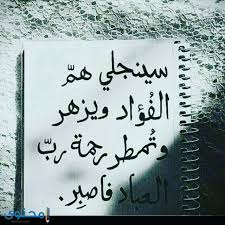 سينجلي همّ
الفُؤاد ويزهر
وتُمطر رحمة ربّ
العباد فاصبِر.
محتوى